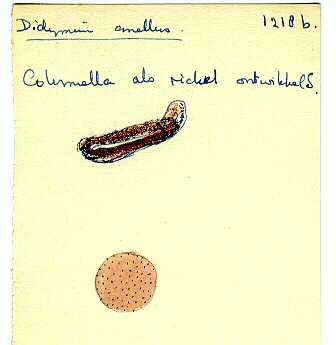 Didymium anellus. 1218 b.
Columella als richel ontwikkeld.